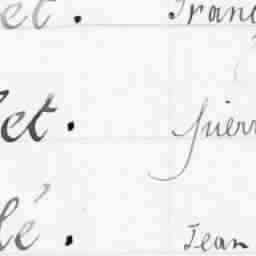 et. Franc
let. pierr
lé. Jean